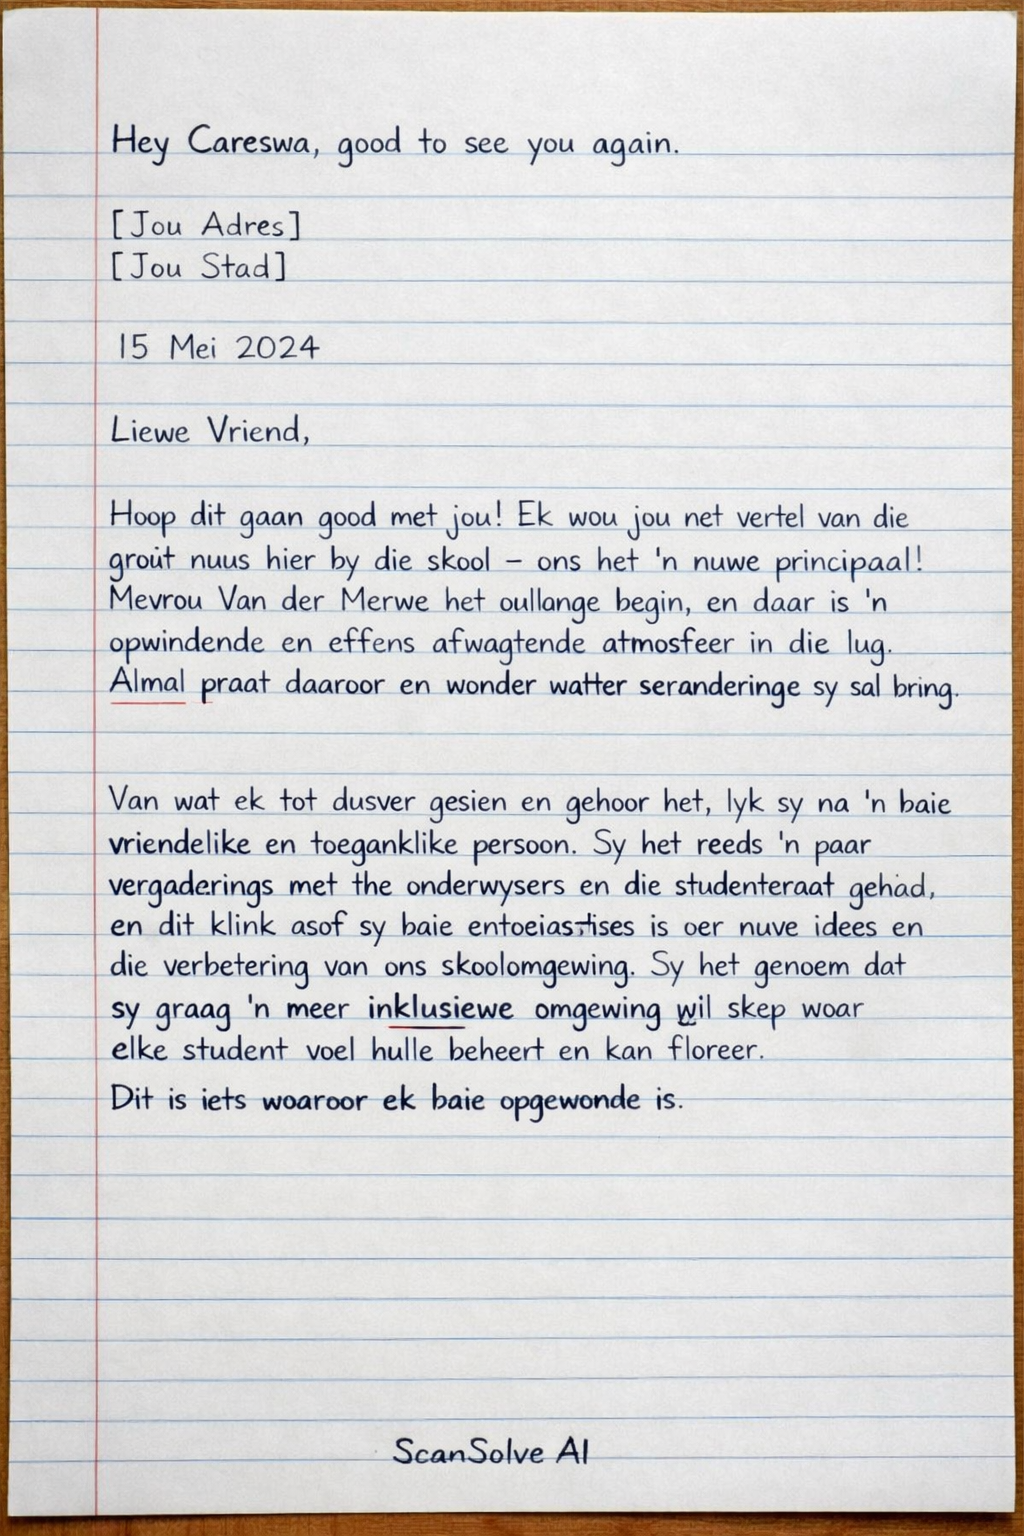 Hey Careswa, good to see you again.
[Jou Adres]
[Jou Stad]
15 Mei 2024
Liewe Vriend,
Hoop dit gaan good met jou! Ek wou jou net vertel van die
grout nuus hier by die skool – ons het 'n nuwe principaal!
Mevrou Van der Merwe het oullange begin, en daar is 'n
opwindende en effens afwagtende atmosfeer in die lug.
Almal praat daaroor en wonder watter seranderinge sy sal bring.
Van wat ek tot dusver gesien en gehoor het, lyk sy na 'n baie
vriendelike en toeganklike persoon. Sy het reeds 'n paar
vergaderings met the onderwysers en die studenteraat gehad,
en dit klink asof sy baie entoeiastises is oer nuve idees en
die verbetering van ons skoolomgewing. Sy het genoem dat
sy graag 'n meer inklusiewe omgewing wil skep woar
elke student voel hulle beheert en kan floreer.
Dit is iets woaroor ek baie opgewonde is.
ScanSolve AI